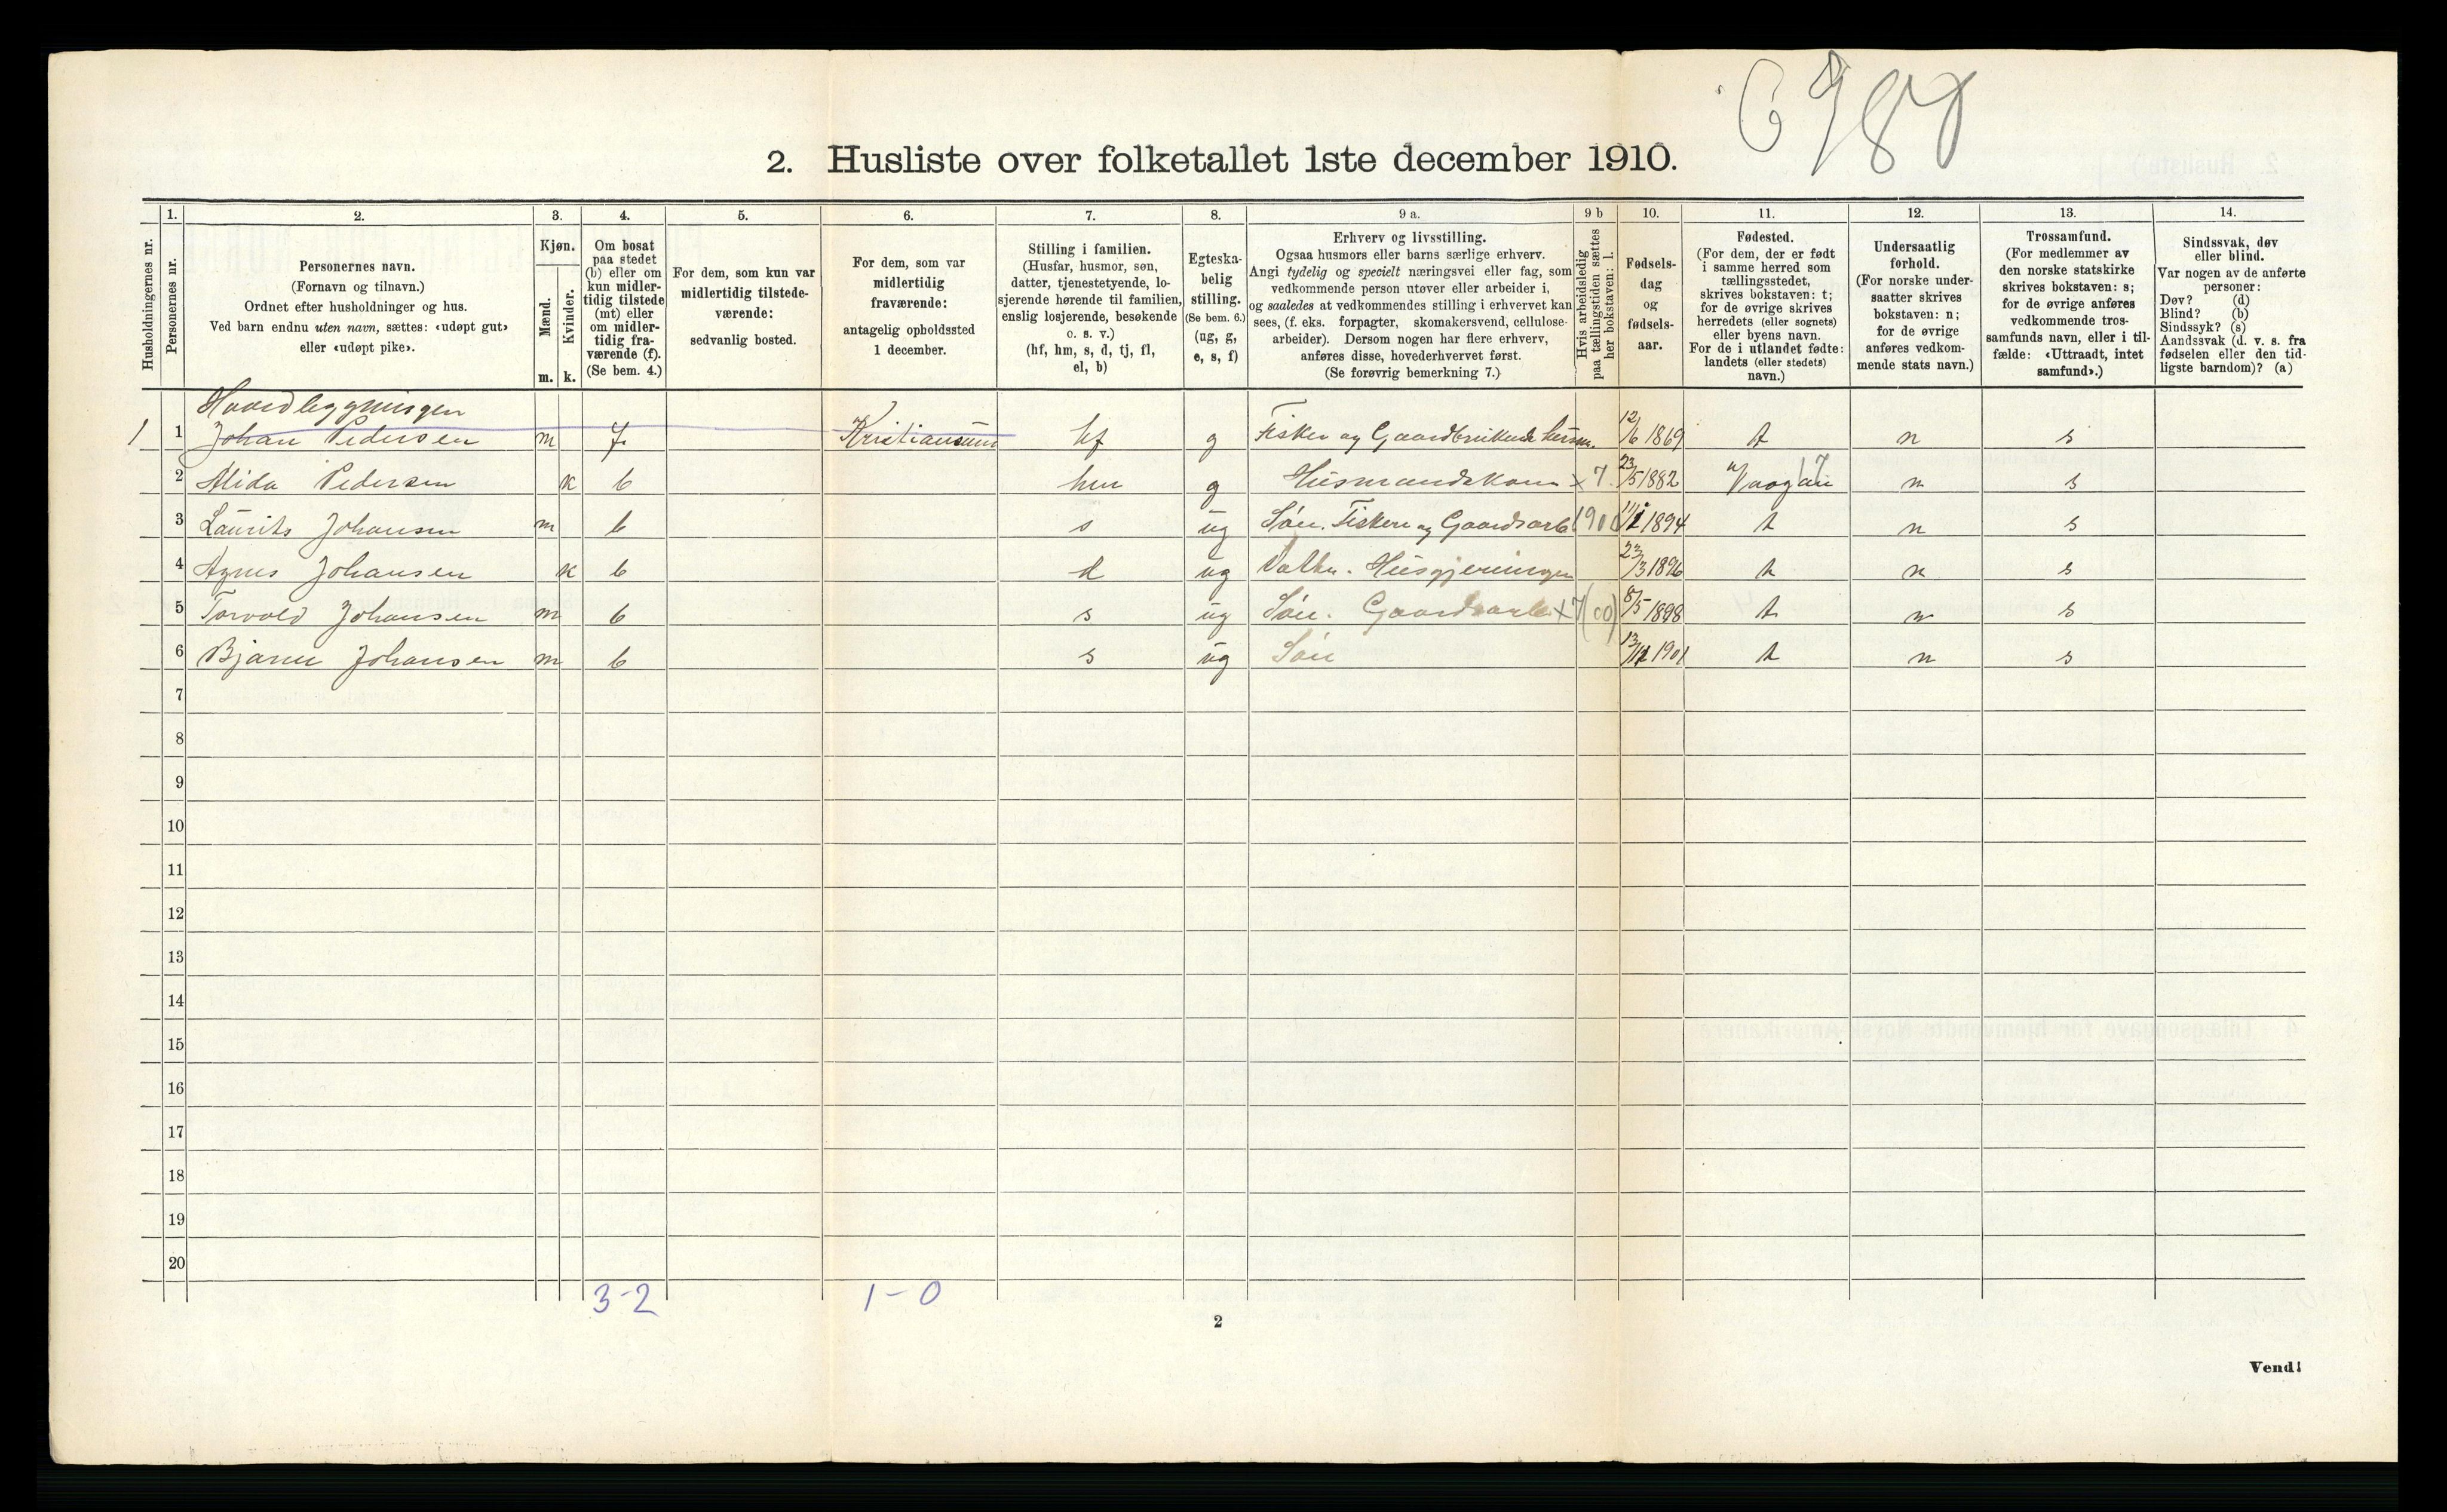 2. Husliste over folketallet 1ste december 1910.
1. 2. 3. 4. 5. 6. 7. 8. 9 a. 9 b 10. 11. 12. 13. 14.
Husholdningernes nr.
Personernes nr.
Personernes navn.
(Fornavn og tilnavn.)
Ordnet efter husholdninger og hus.
Ved barn endnu uten navn, sættes: «udøpt gut»
eller «udøpt pike».
Kjøn.
Mænd.
Kvinder.
m. k.
Om bosat
paa stedet
(b) eller om
kun midler-
tidig tilstede
(mt) eller
om midler-
tidig fra-
værende (f).
(Se bem. 4.)
For dem, som kun var
midlertidig tilstede-
værende:
sedvanlig bosted.
For dem, som var
midlertidig
fraværende:
antagelig opholdssted
1 december.
Stilling i familien.
(Husfar, husmor, søn,
datter, tjenestetyende, lo-
sjerende hørende til familien,
enslig losjerende, besøkende
o. s. v.)
(hf, hm, s, d, tj, fl,
el, b)
Egteska-
belig
stilling.
(Se bem. 6.)
(ug, g,
e, s, f)
Erhverv og livsstilling.
Ogsaa husmors eller barns særlige erhverv.
Angi tydelig og specielt næringsvei eller fag, som
vedkommende person utøver eller arbeider i,
og saaledes at vedkommendes stilling i erhvervet kan
sees, (f. eks. forpagter, skomakersvend, cellulose-
arbeider). Dersom nogen har flere erhverv,
anføres disse, hovederhvervet først.
(Se forøvrig bemerkning 7.)
Hvis arbeidsledig
paa tællingstiden sættes
her bokstaven: l.
Fødsels-
dag
og
fødsels-
aar.
Fødested.
(For dem, der er født
i samme herred som
tællingsstedet,
skrives bokstaven: t;
for de øvrige skrives
herredets (eller sognets)
eller byens navn.
For de i utlandet fødte:
landets (eller stedets)
navn.)
Undersaatlig
forhold.
(For norske under-
saatter skrives
bokstaven: n;
for de øvrige
anføres vedkom-
mende stats navn.)
Trossamfund.
(For medlemmer av
den norske statskirke
skrives bokstaven: s;
for de øvrige anføres
vedkommende tros-
samfunds navn, eller i til-
fælde: «Uttraadt, intet
samfund».)
Sindssvak, døv
eller blind.
Var nogen av de anførte
personer:
Døv? (d)
Blind? (b)
Sindssyk? (s)
Aandssvak (d. v. s. fra
fødselen eller den tid-
ligste barndom)? (a)
1 1 Johan Pedersen m f. Kristiansund hf g Fisker og Gaardbruker 12/6 1869 t n s
2 Alida Pedersen k b hm g Husmandskone 23/5 1882 n s
3 Laurits Johansen m b s ug Søn. Fisker og Gaardsarb 1894 t n s
4 Agnes Johansen k b d ug Datter. Husgjerningen 23/3 1896 t n s
5 Torvald Johansen m b s ug Søn. Gaardsarb 8/5 1898 t n s
6 Bjarne Johansen m b s ug Søn 1901 t n s
7
8
9
10
11
12
13
14
15
16
17
18
19
20
3-2 1-0
2
Vend!